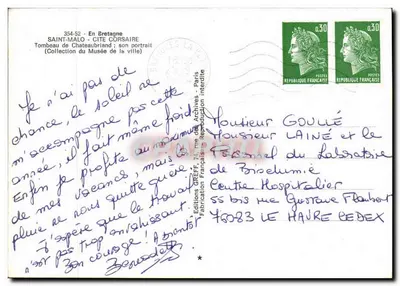 354-52 - En Bretagne
SAINT-MALO - CITE CORSAIRE
Tombeau de Chateaubriand ; son portrait
(Collection du Musée de la ville)
Je n'ai pas de
chance, le soleil ne
m'accompagne pas cette
année, il fait même froid
Enfin je profite au maximum
de mes vacances, mais la
pluie ne nous quitte guère
J'espère que le travail
n'est pas trop envahissant.
Bon courage ! A bientôt
Bernadette
Editions GREFF, 37, rue des Archives - Paris
Fabrication Française - Reproduction interdite
0,30
POSTES
REPUBLIQUE FRANÇAISE
0,30
POSTES
REPUBLIQUE FRANÇAISE
Monsieur GOULLÉ
Monsieur LAINÉ et le
Personnel du Laboratoire
de Biochimie
Centre Hospitalier
55 bis rue Gustave Flaubert
76083 LE HAVRE CEDEX